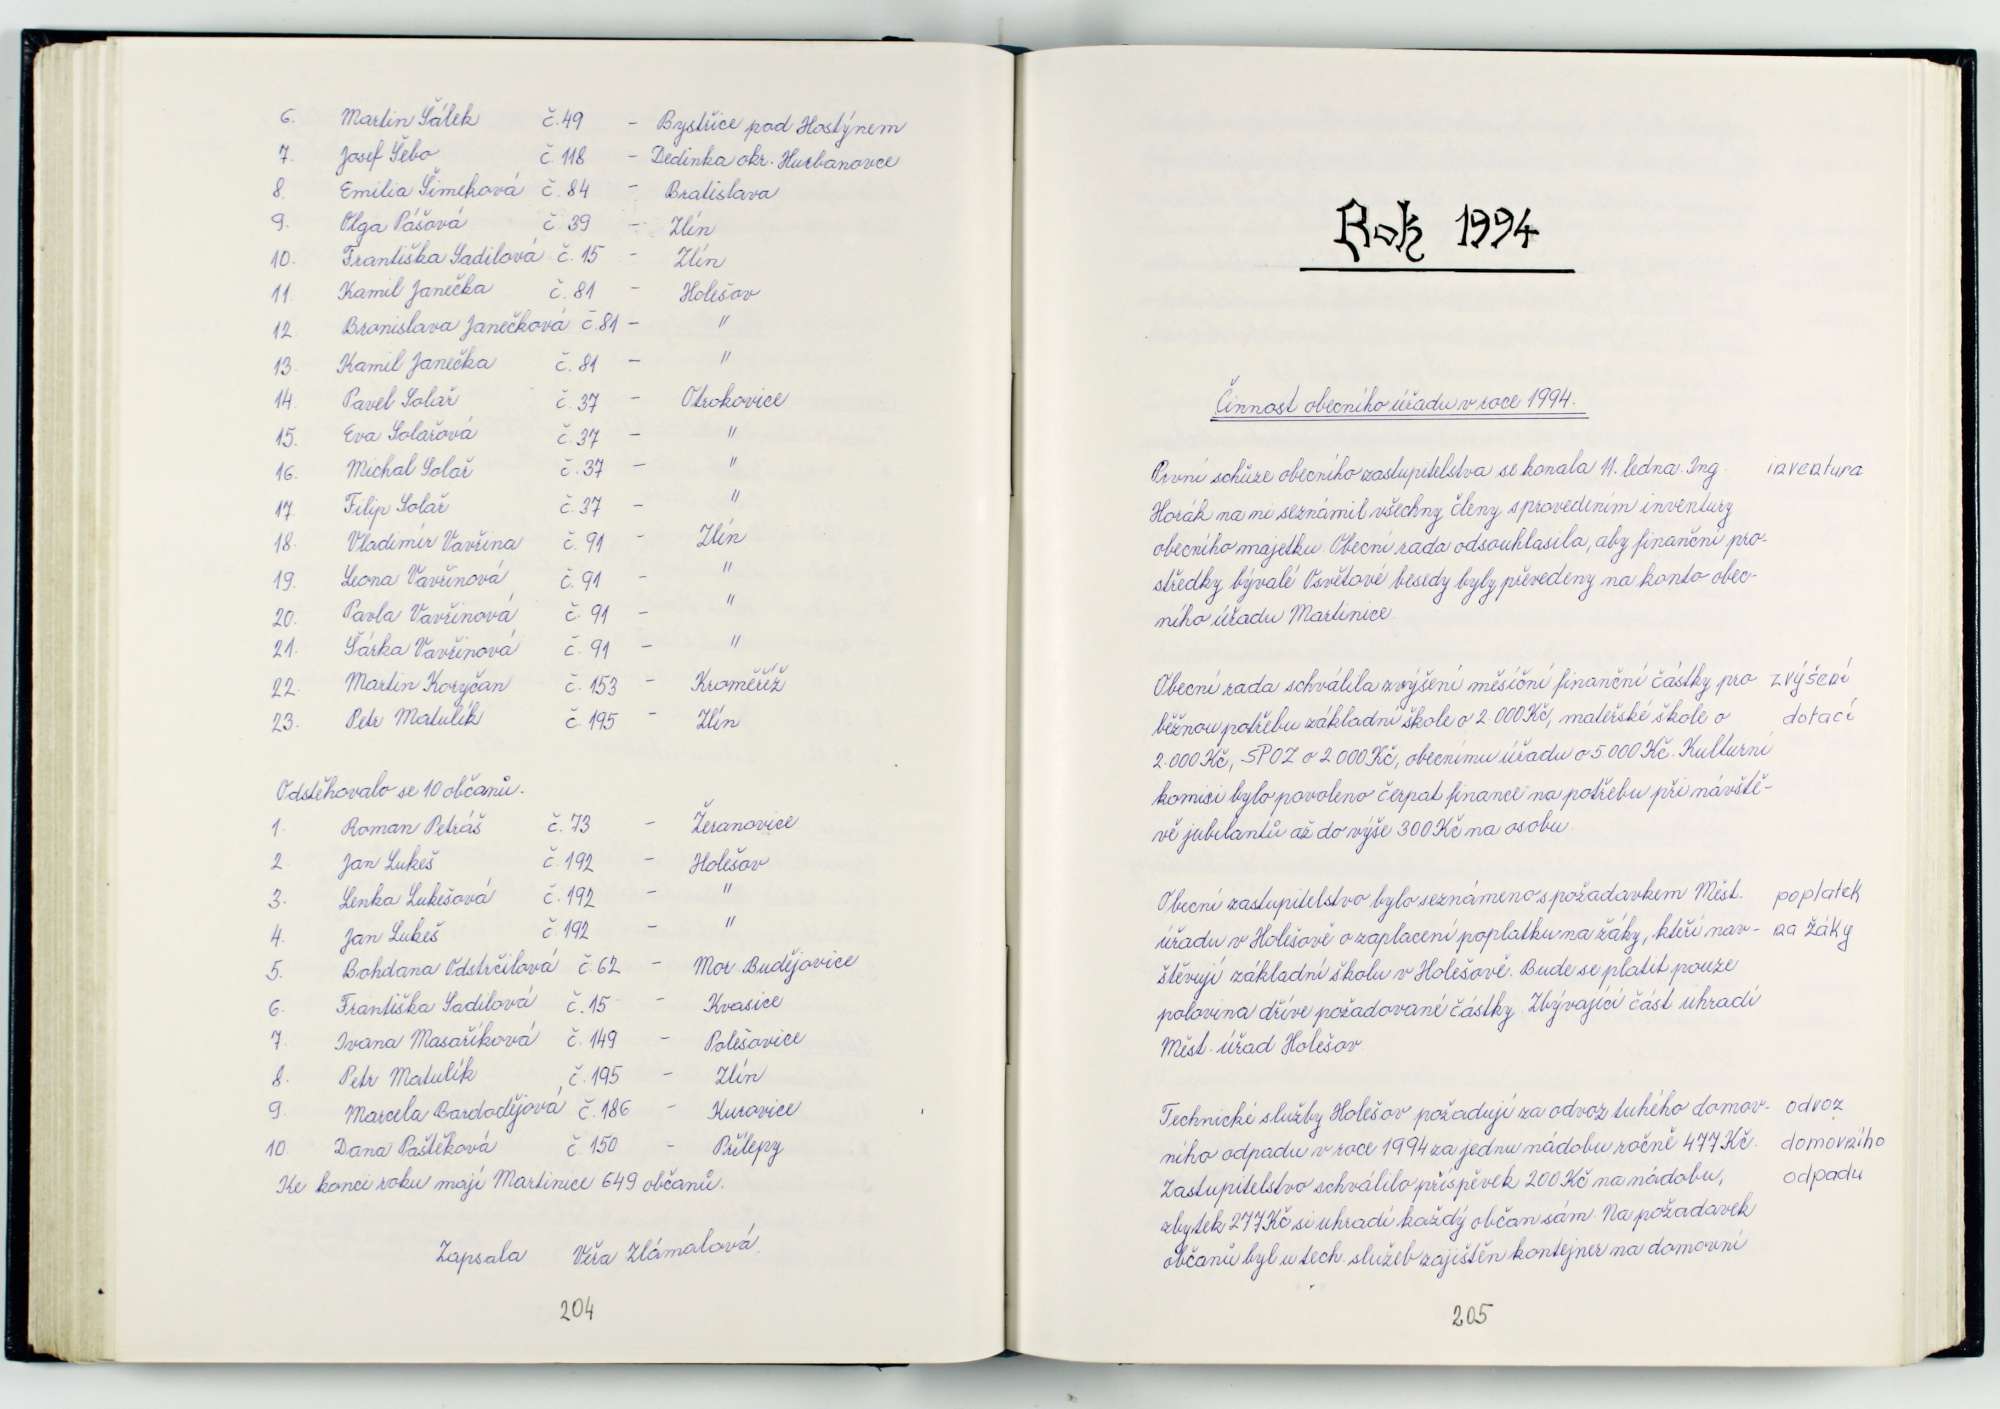 6. Martin Šálek č. 49 - Bystřice pod Hostýnem
7. Josef Šebo č. 118 - Dedinka okr. Hurbanovce
8. Emilia Šimeková č. 84 - Bratislava
9. Olga Pášová č. 39 - Zlín
10. Františka Sadilová č. 15 - Zlín
11. Kamil Janečka č. 81 - Holešov
12. Bronislava Janečková č. 81 - "
13. Kamil Janečka č. 81 - "
14. Pavel Solař č. 37 - Otrokovice
15. Eva Solařová č. 37 - "
16. Michal Solař č. 37 - "
17. Filip Solař č. 37 - "
18. Vladimír Vavřina č. 91 - Zlín
19. Leona Vavřinová č. 91 - "
20. Pavla Vavřinová č. 91 - "
21. Šárka Vavřinová č. 91 - "
22. Martin Koryčan č. 153 - Kroměříž
23. Petr Matulík č. 195 - Zlín
Odstěhovalo se 10 občanů.
1. Roman Petráš č. 73 - Žeranovice
2. Jan Lukeš č. 192 - Holešov
3. Lenka Lukešová č. 192 - "
4. Jan Lukeš č. 192 - "
5. Bohdana Odstrčilová č. 62 - Mor. Budějovice
6. Františka Sadilová č. 15 - Kvasice
7. Ivana Masaříková č. 149 - Polešovice
8. Petr Matulík č. 195 - Zlín
9. Marcela Bardodějová č. 186 - Kurovice
10. Dana Paštěková č. 150 - Přílepy
Ke konci roku mají Martinice 649 občanů.
Zapsala Věra Zlámalová
204
Rok 1994
Činnost obecního úřadu v roce 1994.
První schůze obecního zastupitelstva se konala 11. ledna. Ing. inventura
Horák na ní seznámil všechny členy s provedením inventury
obecního majetku. Obecní rada odsouhlasila, aby finanční pro-
středky bývalé Osvětové besedy byly převedeny na konto obec-
ního úřadu Martinice.
Obecní rada schválila zvýšení měsíční finanční částky pro zvýšení
běžnou potřebu základní škole o 2.000 Kč, mateřské škole o dotací
2.000 Kč, SPOZ o 2000 Kč, obecnímu úřadu o 5.000 Kč. Kulturní
komisi bylo povoleno čerpat finance na potřebu při návště-
vě jubilantů až do výše 300 Kč na osobu.
Obecní zastupitelstvo bylo seznámeno s požadavkem Měst. poplatek
úřadu v Holešově o zaplacení poplatku na žáky, kteří nav- na žáky
štěvují základní školu v Holešově. Bude se platit pouze
polovina dříve požadované částky. Zbývající část uhradí
Měst. úřad Holešov.
Technické služby Holešov požadují za odvoz tuhého domov- odvoz
ního odpadu v roce 1994 za jednu nádobu ročně 477 Kč. domovního
Zastupitelstvo schválilo příspěvek 200 Kč na nádobu, odpadu
zbytek 277 Kč si uhradí každý občan sám. Na požadavek
občanů byl u tech. služeb zajištěn kontejner na domovní
205